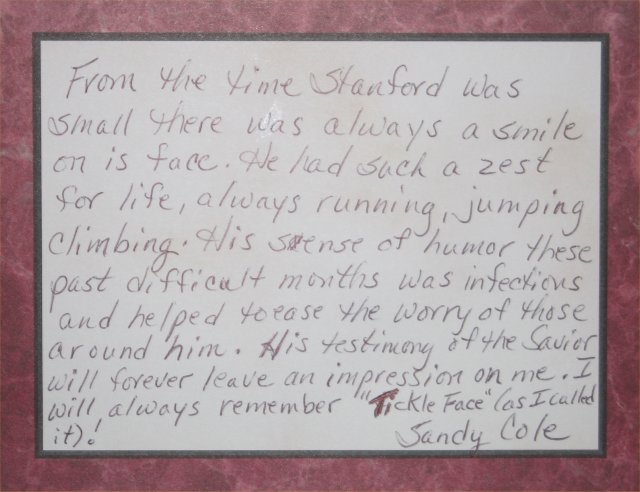 From the time Stanford was
small there was always a smile
on is face. He had such a zest
for life, always running, jumping
climbing. His sense of humor these
past difficult months was infectious
and helped to ease the worry of those
around him. His testimony of the Savior
will forever leave an impression on me. I
will always remember "Tickle Face" (as I called
it)!
Sandy Cole